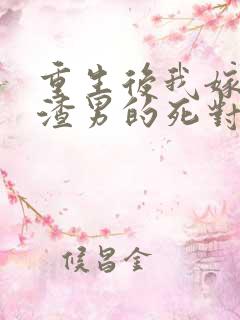 重生後我嫁
渣男的死對
候昌金